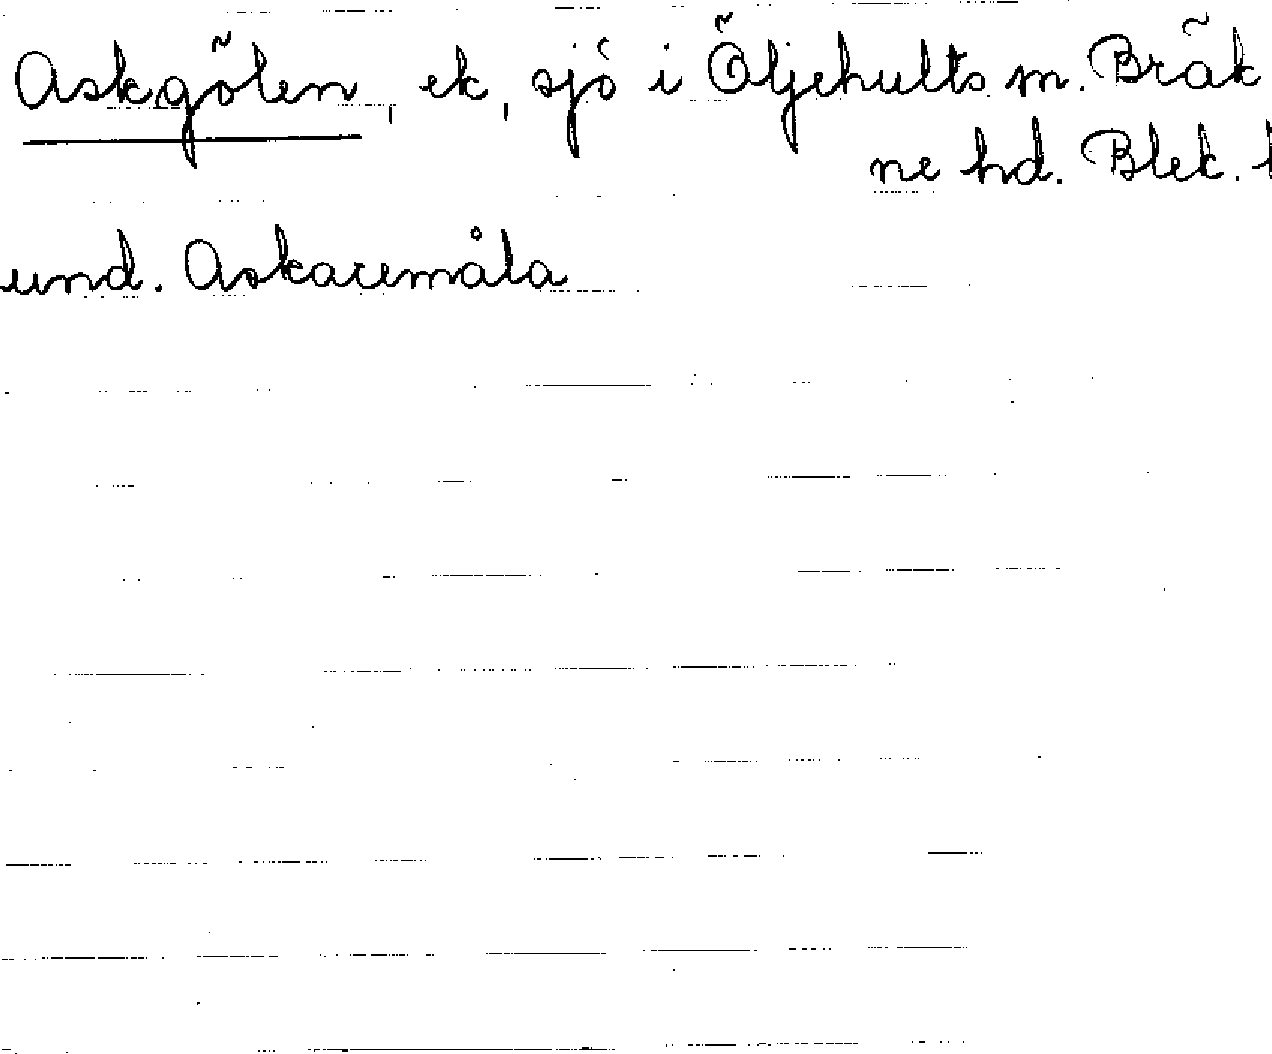 Askgölen, ek, sjö i Öljehults sn. Bräk
ne hd. Blek. l
und. Askaremåla